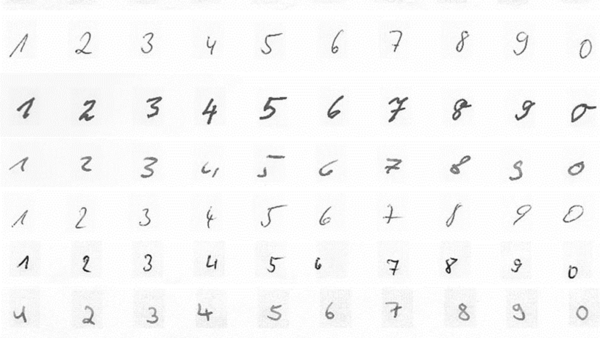 1 2 3 4 5 6 7 8 9 0
1 2 3 4 5 6 7 8 9 0
1 2 3 4 5 6 7 8 9 0
1 2 3 4 5 6 7 8 9 0
1 2 3 4 5 6 7 8 9 0
2 3 4 5 6 7 8 9 0